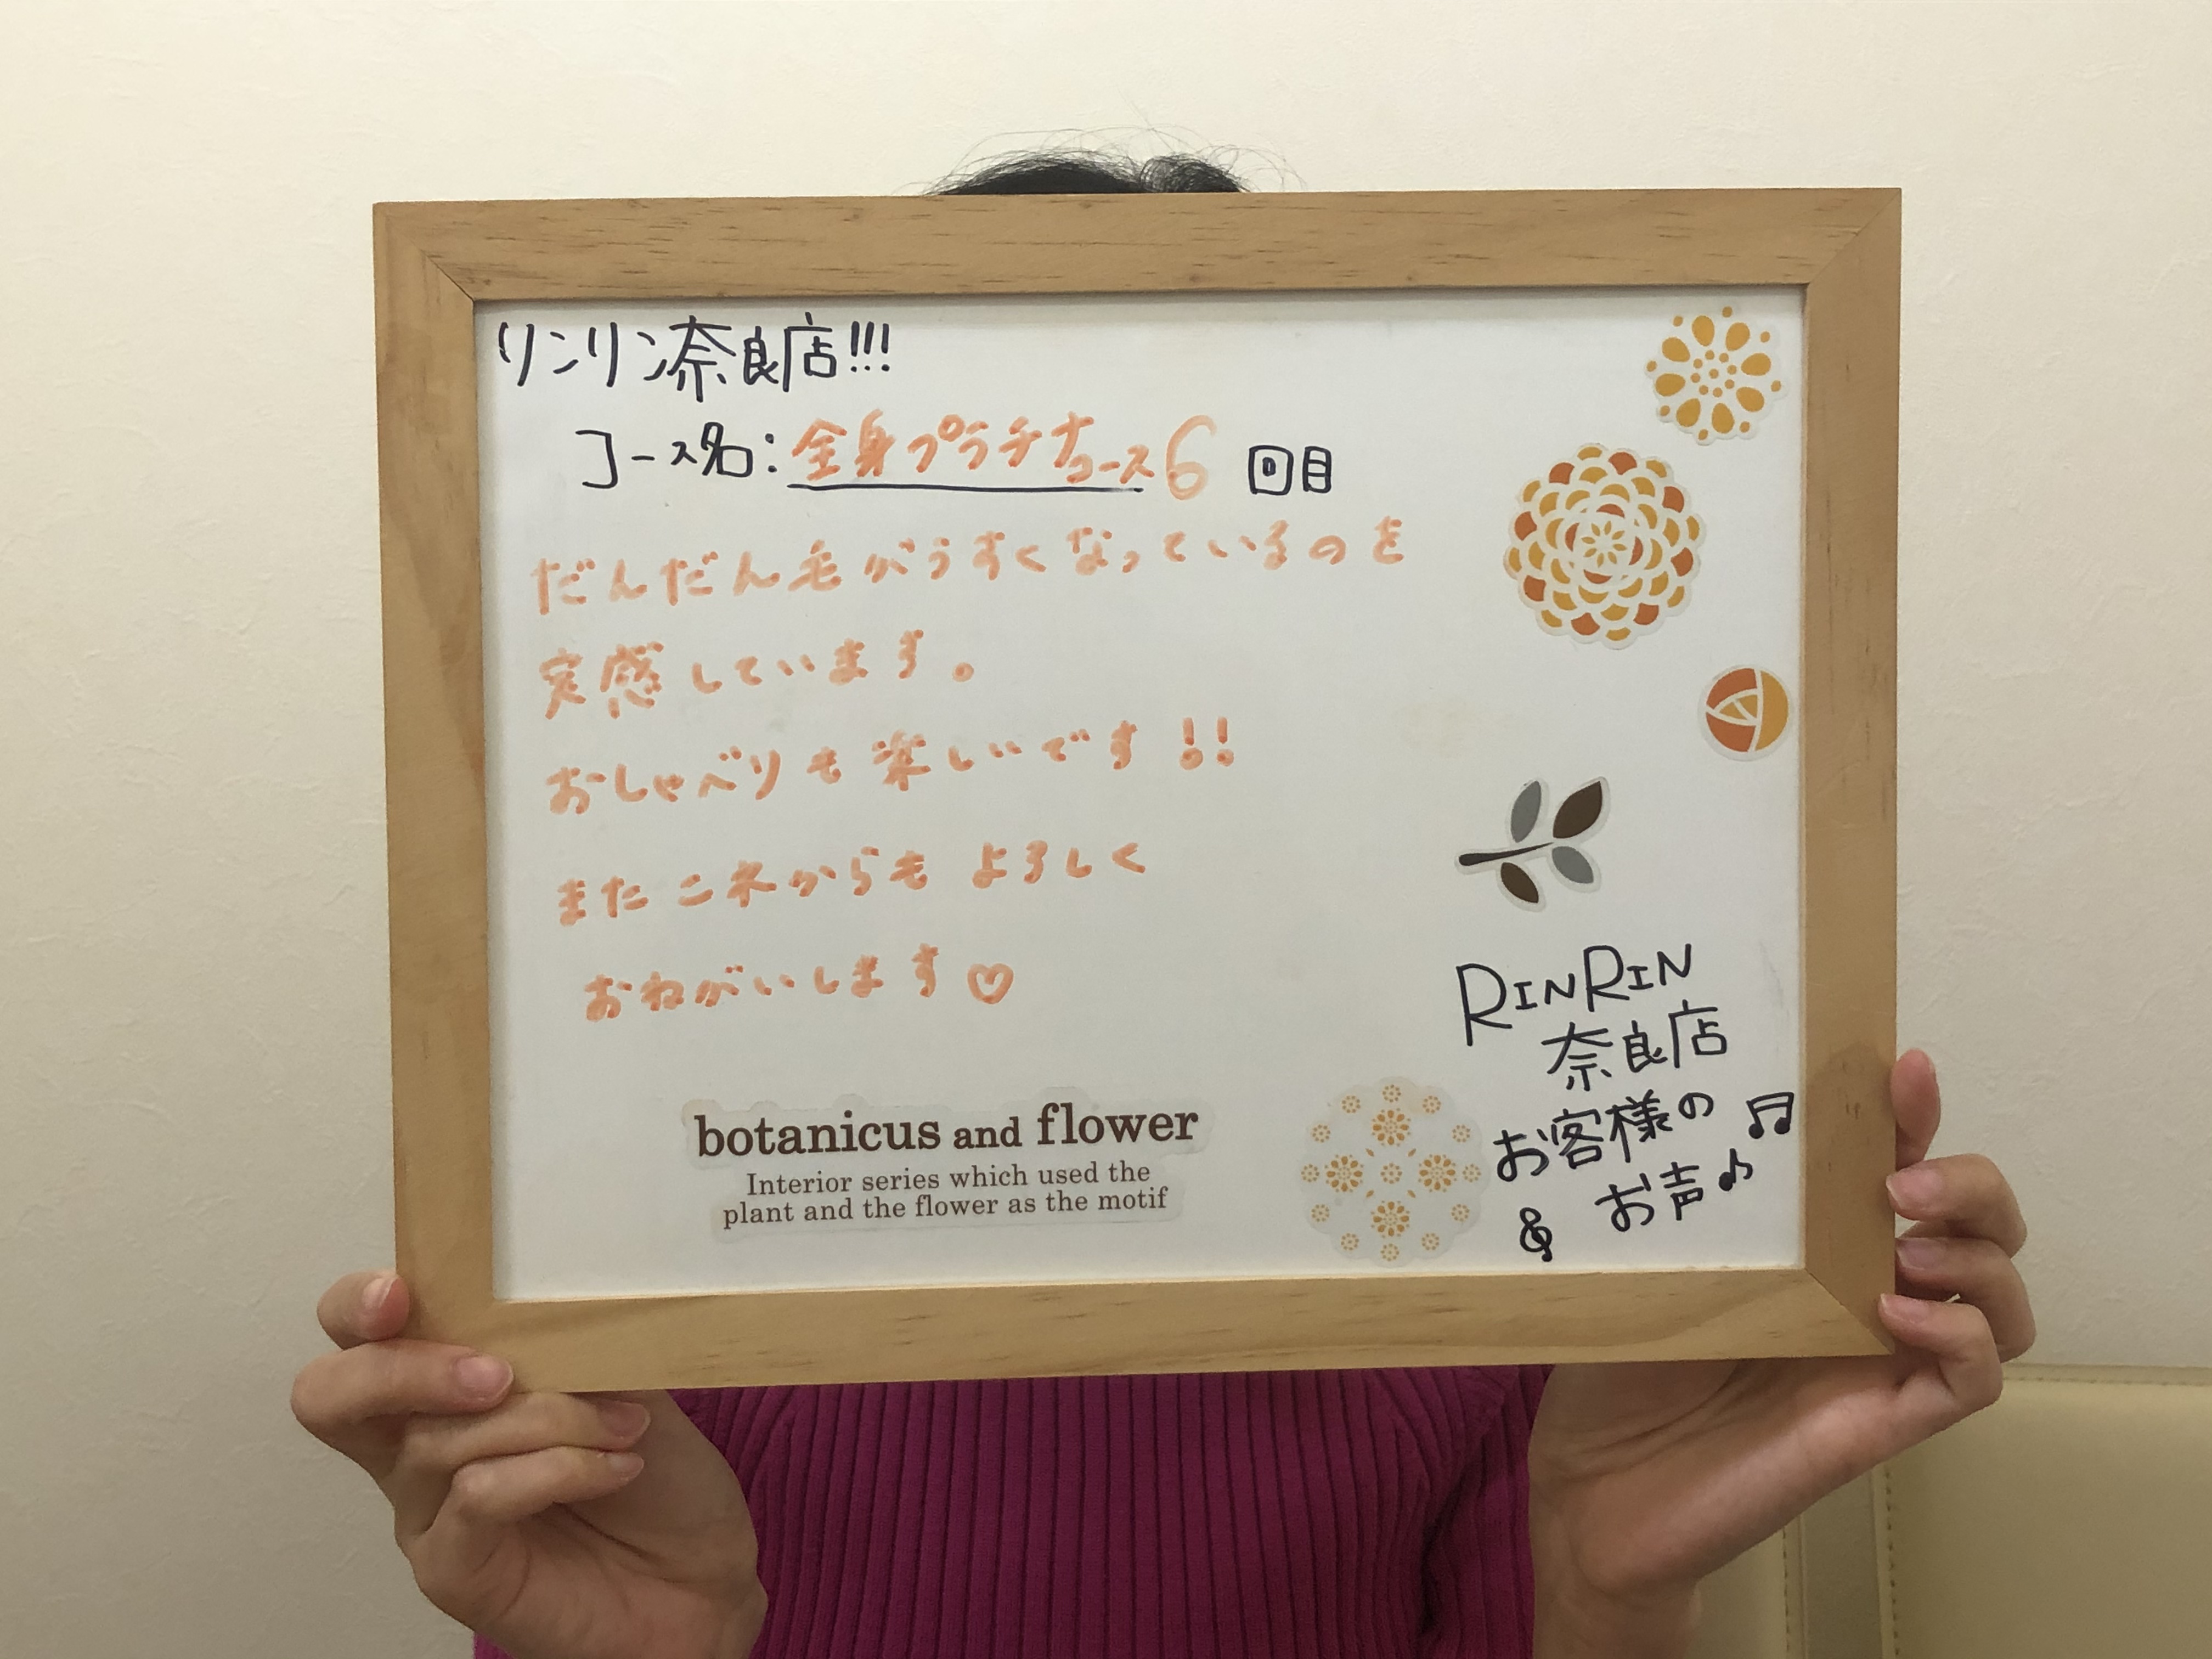 リンリン奈良店!!!
コース名:全身プラチナコース6 回目
だんだん毛がうすくなっているのを
実感しています。
おしゃべりも楽しいです!!
またこれからもよろしく
おねがいします♡
RINRIN
奈良店
お客様の
お声♪
botanicus and flower
Interior series which used the
plant and the flower as the motif